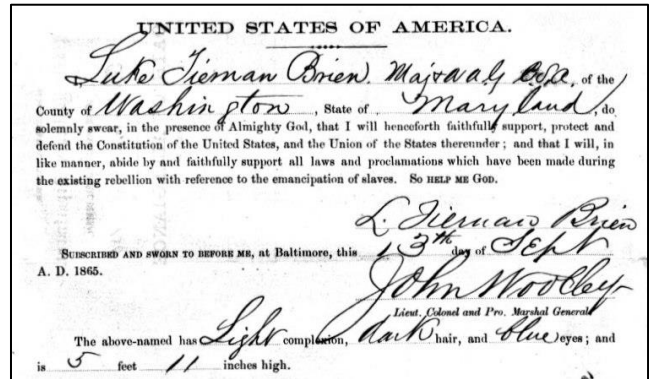 UNITED STATES OF AMERICA.
Luke Tiernan Brien. Maj & a a g C.S.A. of the
County of Washington, State of Maryland, do
solemnly swear, in the presence of Almighty God, that I will henceforth faithfully support, protect and
defend the Constitution of the United States, and the Union of the States thereunder; and that I will, in
like manner, abide by and faithfully support all laws and proclamations which have been made during
the existing rebellion with reference to the emancipation of slaves. So HELP ME GOD.
L. Tiernan Brien
SUBSCRIBED AND SWORN TO BEFORE ME, at Baltimore, this 13th day of Sept
A. D. 1865.
John Woolley
Lieut. Colonel and Pro. Marshal General
The above-named has Light complexion, dark hair, and blue eyes; and
is 5 feet 11 inches high.